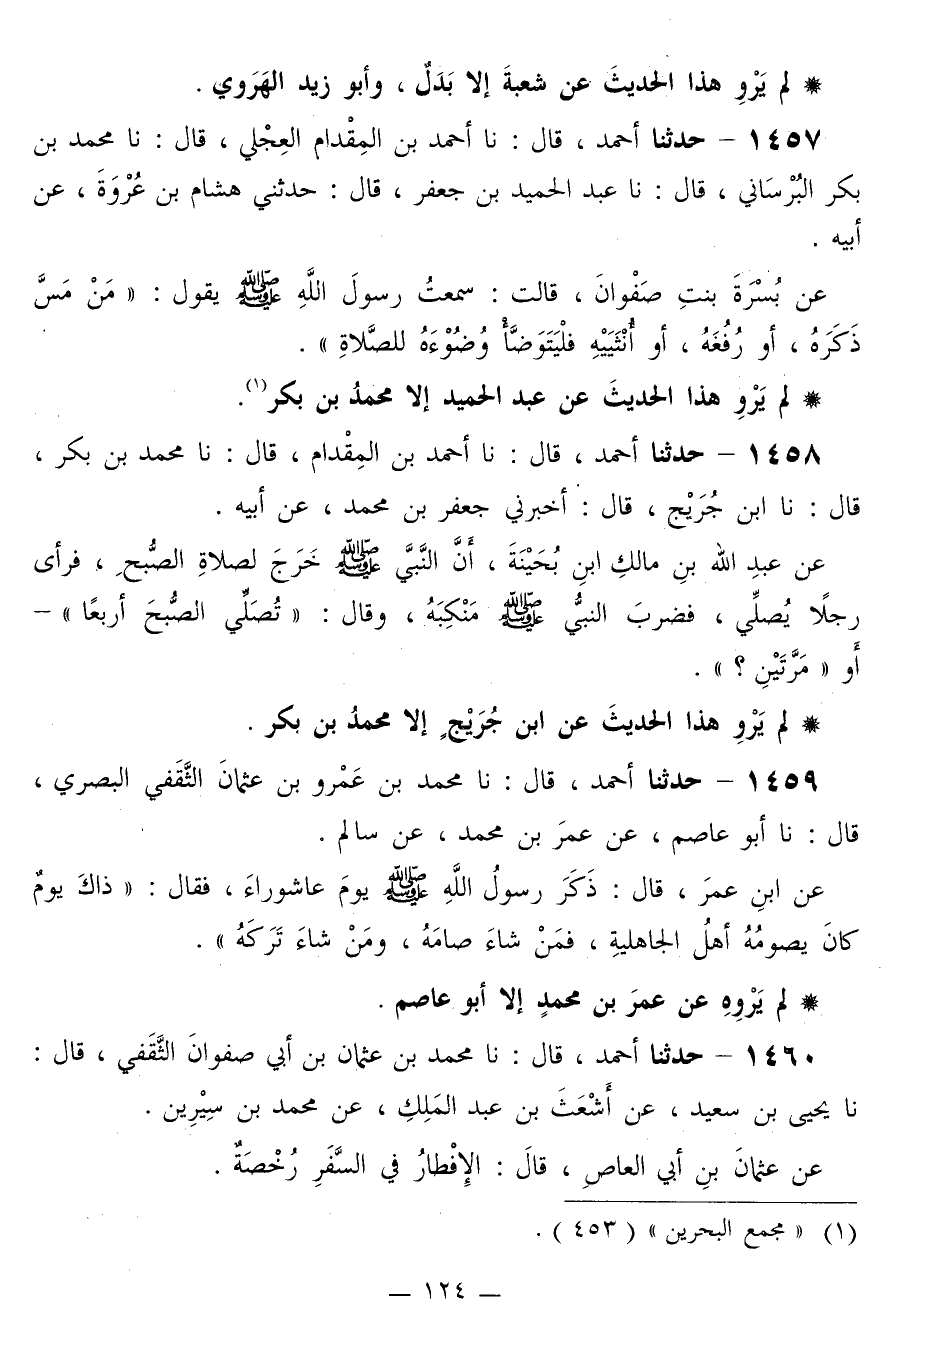 * لم يَرْوِ هذا الحديثَ عن شعبةَ إلا بَدَلٌ ، وأبو زيد الهَرَوي .
١٤٥٧ – حدثنا أحمد ، قال : نا أحمد بن المِقْدام العِجْلي ، قال : نا محمد بن
بكر البُرْسَاني ، قال : نا عبد الحميد بن جعفر ، قال : حدثني هشام بن عُرْوَةَ ، عن
أبيه .
عن بُسْرَةَ بنتِ صَفْوانَ ، قالت : سمعتُ رسولَ اللَّهِ ﷺ يقول : « مَنْ مَسَّ
ذَكَرَهُ ، أو رُفُغَهُ ، أو أُنْثَيَيْهِ فلْيَتَوَضَّأْ وُضُوْءَهُ للصَّلاةِ » .
* لم يَرْوِ هذا الحديثَ عن عبد الحميد إلا محمدُ بن بكر(١).
١٤٥٨ – حدثنا أحمد ، قال : نا أحمد بن المِقْدام ، قال : نا محمد بن بكر ،
قال : نا ابن جُرَيْج ، قال : أخبرني جعفر بن محمد ، عن أبيه .
عن عبدِ الله بنِ مالكِ ابنِ بُحَيْنَةَ ، أَنَّ النَّبيَّ ﷺ خَرَجَ لصلاةِ الصُّبحِ ، فرأى
رجلًا يُصلِّي ، فضربَ النبيُّ ﷺ مَنْكِبَهُ ، وقال : « تُصَلِّي الصُّبحَ أربعًا » –
أَو « مَرَّتَيْنِ ؟ » .
* لم يَرْوِ هذا الحديثَ عن ابن جُرَيْجٍ إلا محمدُ بن بكر .
١٤٥٩ – حدثنا أحمد ، قال : نا محمد بن عَمْرو بن عثمانَ الثَّقَفي البصري ،
قال : نا أبو عاصم ، عن عمرَ بن محمد ، عن سالم .
عن ابنِ عمرَ ، قال : ذَكَرَ رسولُ اللَّهِ ﷺ يومَ عاشوراءَ ، فقال : « ذاكَ يومٌ
كانَ يصومُهُ أهلُ الجاهليةِ ، فمَنْ شاءَ صامَهُ ، ومَنْ شاءَ تَرَكَهُ » .
* لم يَرْوِهِ عن عمرَ بن محمدٍ إلا أبو عاصم .
١٤٦٠ – حدثنا أحمد ، قال : نا محمد بن عثمان بن أبي صفوانَ الثَّقَفي ، قال :
نا يحيى بن سعيد ، عن أَشْعَثَ بن عبد المَلِكِ ، عن محمد بن سِيْرِين .
عن عثمانَ بنِ أبي العاصِ ، قالَ : الإِفْطارُ في السَّفَرِ رُخْصَةٌ .
(١) « مجمع البحرين » ( ٤٥٣ ) .
– ١٢٤ –